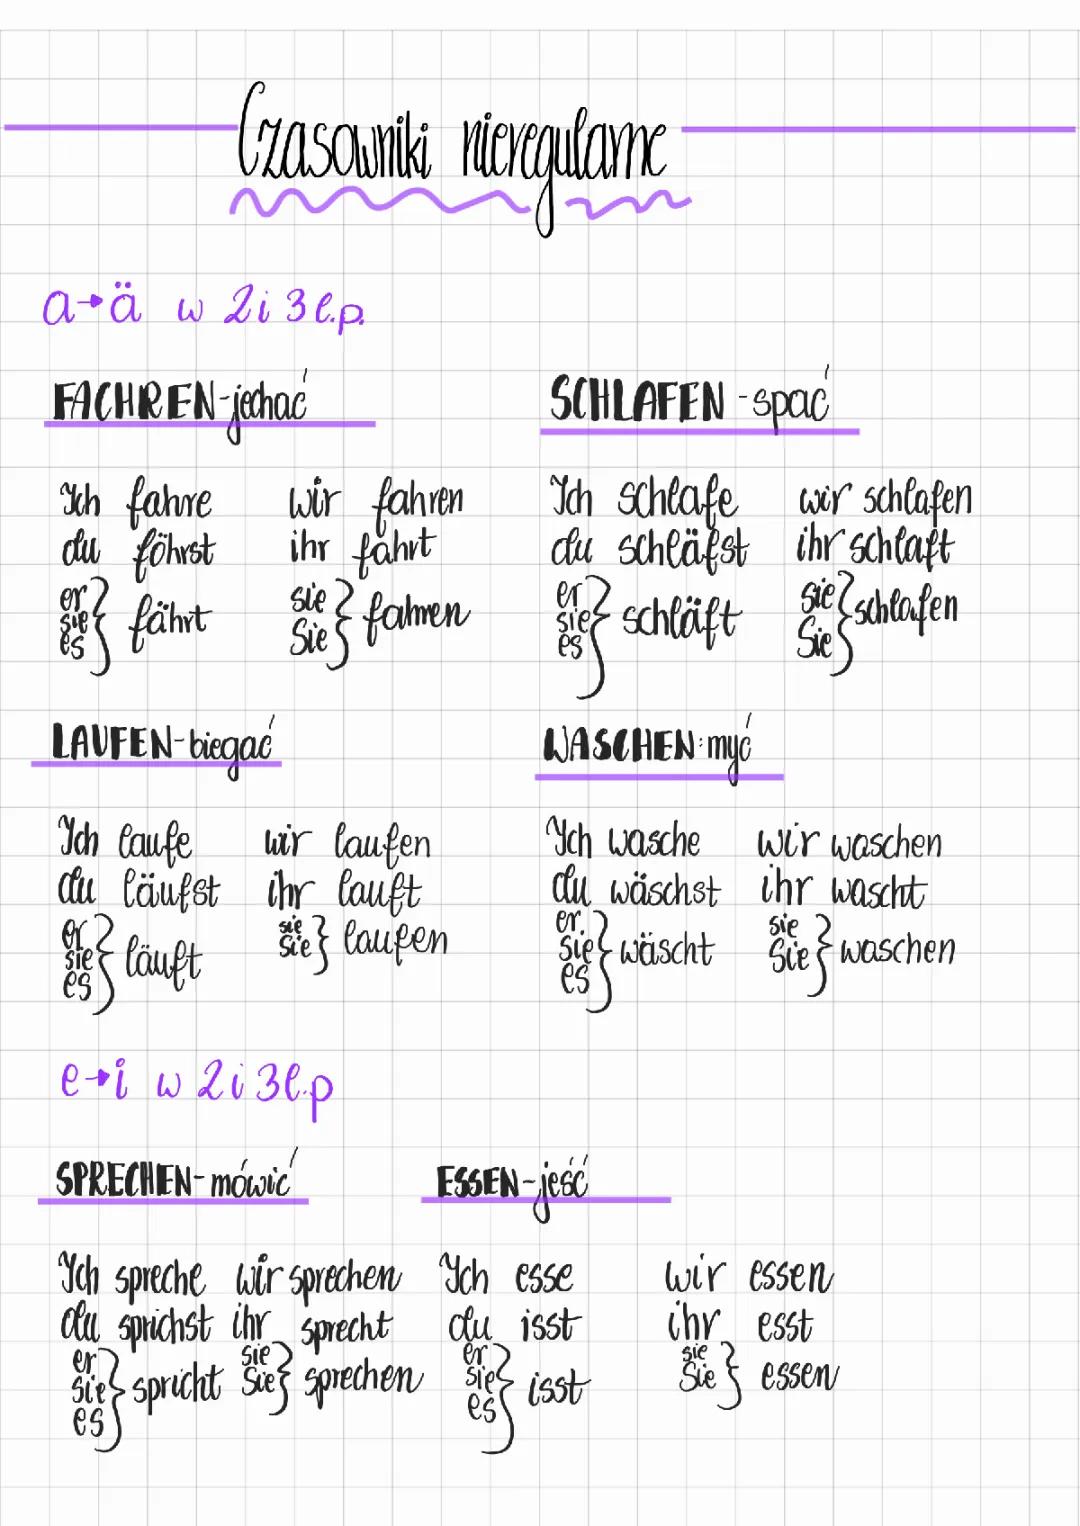 Czasowniki nieregularne
a→ä w 2 i 3 l.p.
FACHREN-jechać
Ich fahre wir fahren
du föhrst ihr fahrt
er sie es } fährt sie Sie } fahren
SCHLAFEN -spać
Ich schlafe wir schlafen
du schläfst ihr schlaft
er sie es } schläft sie Sie } schlafen
LAUFEN-biegać
Ich laufe wir laufen
du läufst ihr lauft
er sie es } läuft sie Sie } laufen
WASCHEN:myć
Ich wasche wir waschen
du wäschst ihr wascht
er sie es } wäscht sie Sie } waschen
e→i w 2 i 3 l.p
SPRECHEN-mówić
Ich spreche wir sprechen
du sprichst ihr sprecht
er sie es } spricht sie Sie } sprechen
ESSEN-jeść
Ich esse wir essen
du isst ihr esst
er sie es } isst sie Sie } essen